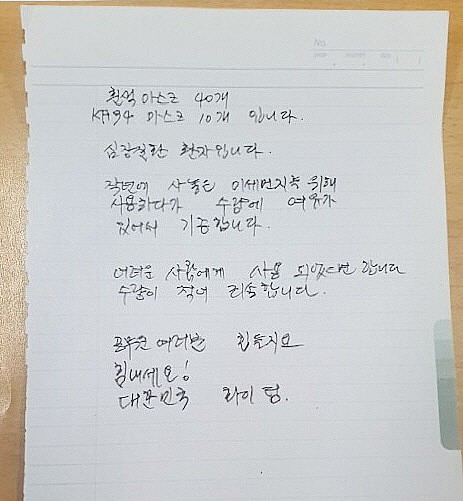 No.
year month day ( )
흰색 마스크 40개
KF94 마스크 10개 입니다.
심장질환 환자입니다.
작년에 사놓은 미세먼지측 위해
사용하다가 수량에 여유가
있어서 기증합니다.
어려운 사람에게 사용 되었으면 합니다
수량이 적어 죄송합니다.
공무원 여러분 힘들지요
힘내세요!
대한민국 화이팅.